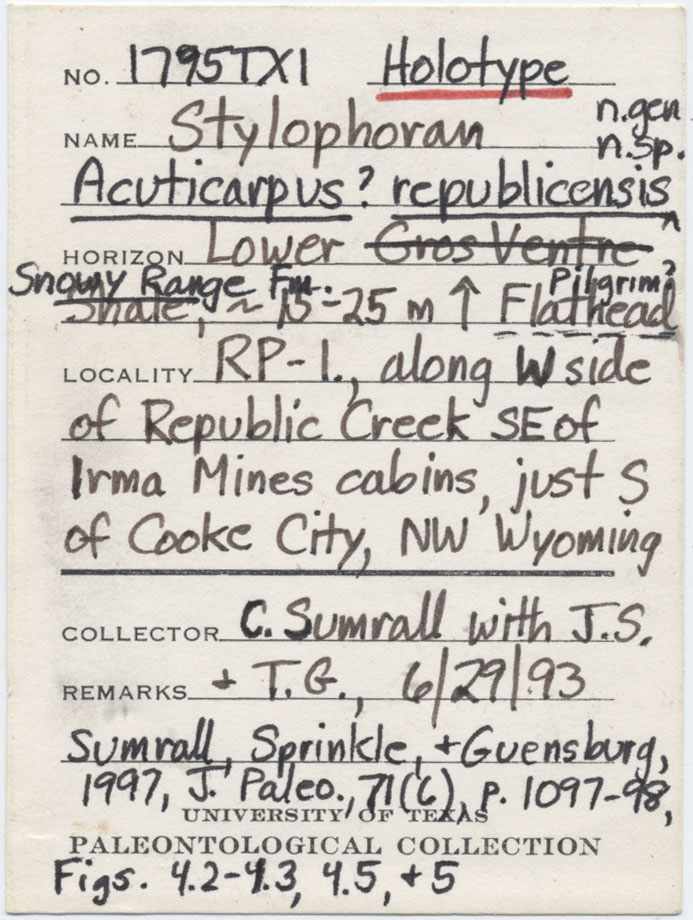 NO. 1795TX1 Holotype
NAME Stylophoran n.gen
n.sp.
Acuticarpus? republicensis
^
HORIZON Lower Gros Ventre
Snowy Range Fm. Pilgrim?
Shale, ~ 15-25 m ↑ Flathead
LOCALITY RP-1., along W side
of Republic Creek SE of
Irma Mines cabins, just S
of Cooke City, NW Wyoming
COLLECTOR C. Sumrall with J.S.
REMARKS + T.G., 6/29/93
Sumrall, Sprinkle, + Guensburg,
1997, J. Paleo., 71(6), p. 1097-98,
UNIVERSITY OF TEXAS
PALEONTOLOGICAL COLLECTION
Figs. 4.2-4.3, 4.5, + 5